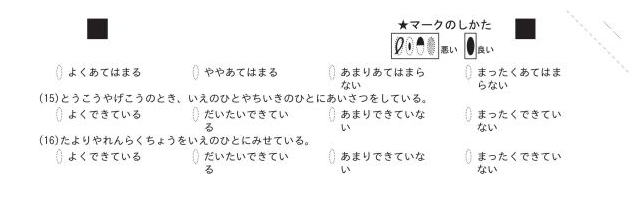 ★マークのしかた
悪い 良い
よくあてはまる ややあてはまる あまりあてはまら まったくあてはま
ない らない
(15)とうこうやげこうのとき、いえのひとやちいきのひとにあいさつをしている。
よくできている だいたいできてい あまりできていな まったくできてい
る い ない
(16)たよりやれんらくちょうをいえのひとにみせている。
よくできている だいたいできてい あまりできていな まったくできてい
る い ない